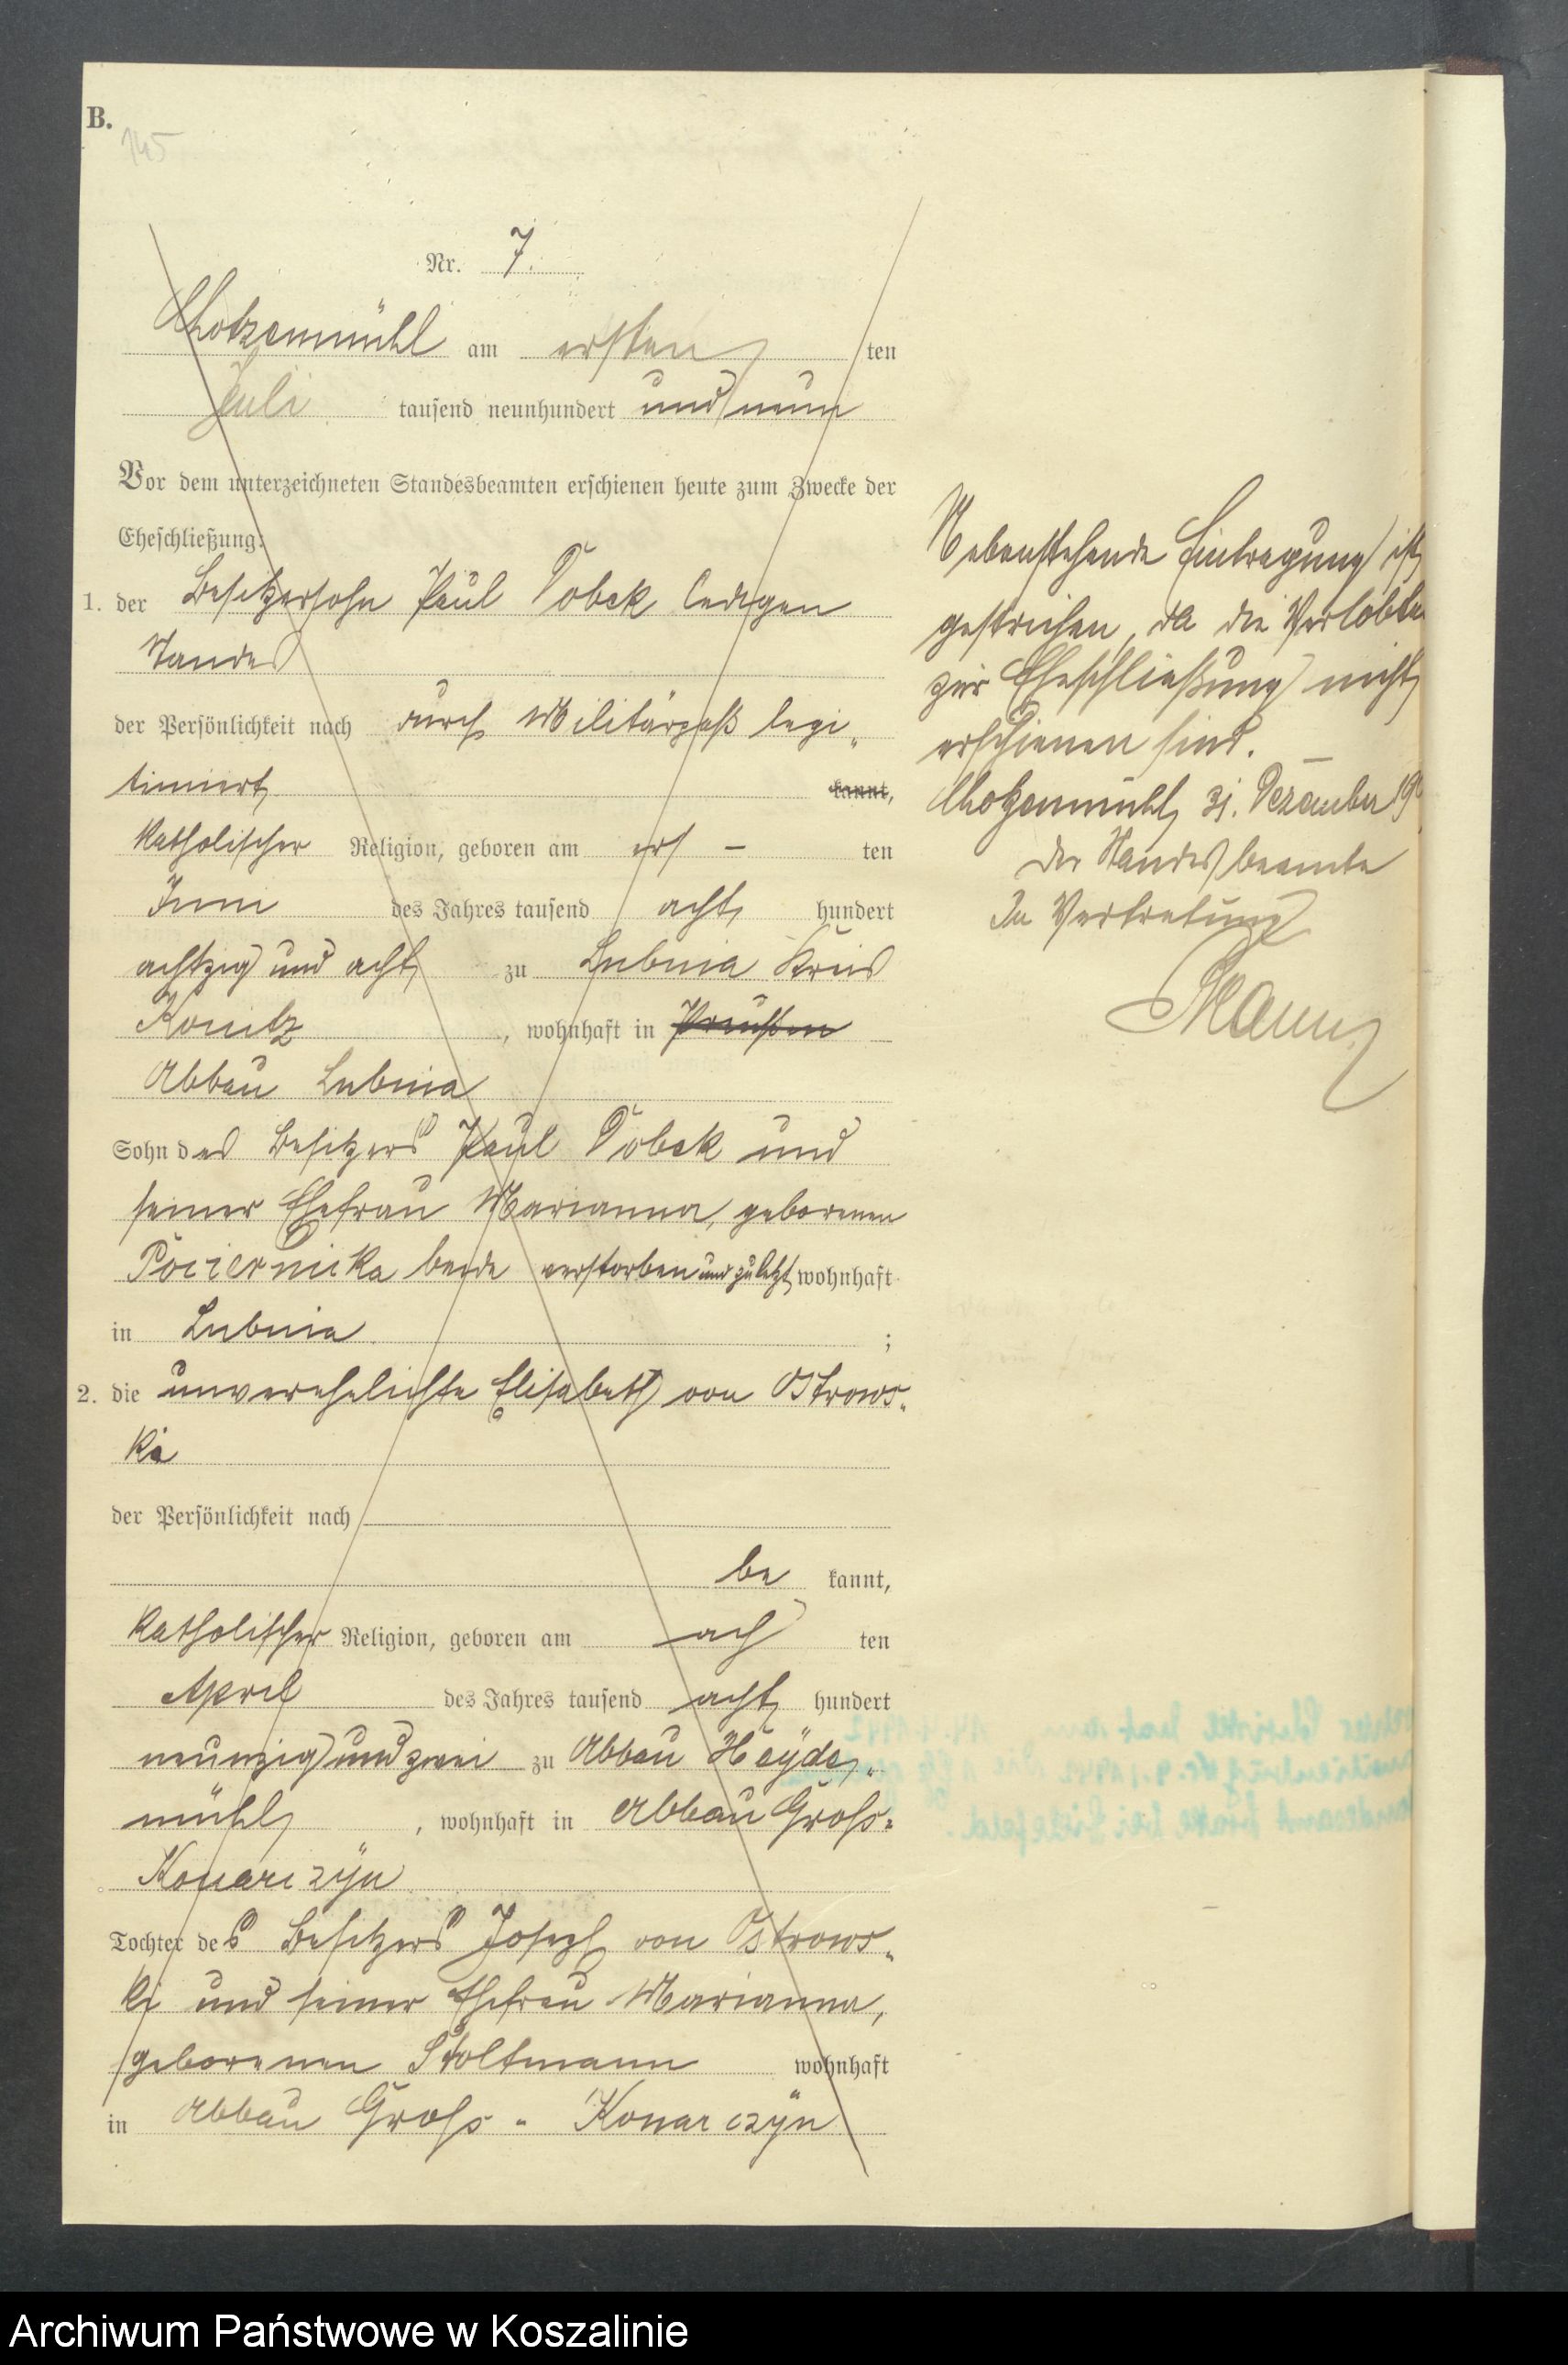 B.
145
Nr. 7.
Chotzenmühl am ersten ten
Juli tausend neunhundert und neun
Vor dem unterzeichneten Standesbeamten erschienen heute zum Zwecke der
Eheschließung:
1. der Besitzersohn Paul Tobek ledigen
Standes
der Persönlichkeit nach durch Militärpaß legi-
timiert kannt,
katholischer Religion, geboren am ers – ten
Juni des Jahres tausend acht hundert
achtzig und acht zu Lubnia Kreis
Konitz, wohnhaft in Preußen
Abbau Lubnia
Sohn des Besitzers Paul Tobek und
seiner Ehefrau Marianna, geborenen
beide verstorben und zuletzt wohnhaft
in Lubnia ;
2. die unverehelichte Elisabeth von Ostrows-
ki
der Persönlichkeit nach
be kannt,
katholischer Religion, geboren am ach ten
April des Jahres tausend acht hundert
neunzig und zwei zu Abbau Heyde-
mühl, wohnhaft in Abbau Groß-
Konarczyn
Tochter des Besitzers Josef von Ostrows-
ki und seiner Ehefrau Marianna,
geborenen Stoltmann wohnhaft
in Abbau Groß - Konarczyn
Nebenstehende Eintragung ist
gestrichen, da die Verlobten
zur Eheschließung nicht
erschienen sind. —
Chotzenmühl, 31. Dezember 19
Der Standesbeamte
In Vertretung
Archiwum Państwowe w Koszalinie